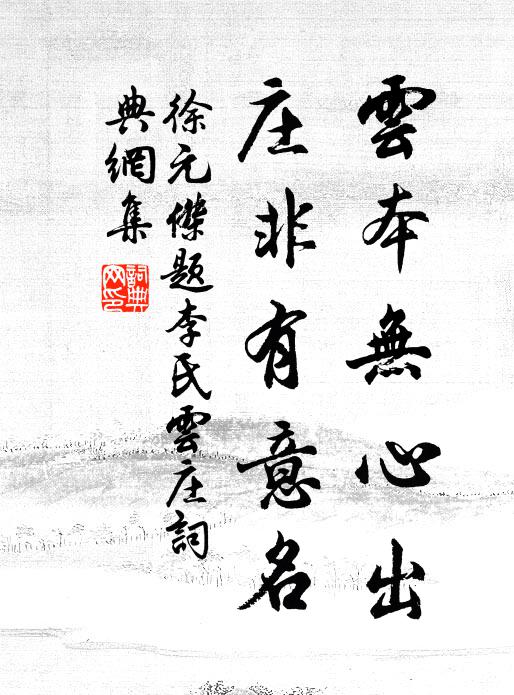 雲本無心出
庄非有意名
徐元傑題李氏雲庄詞
典網集
詞典網印